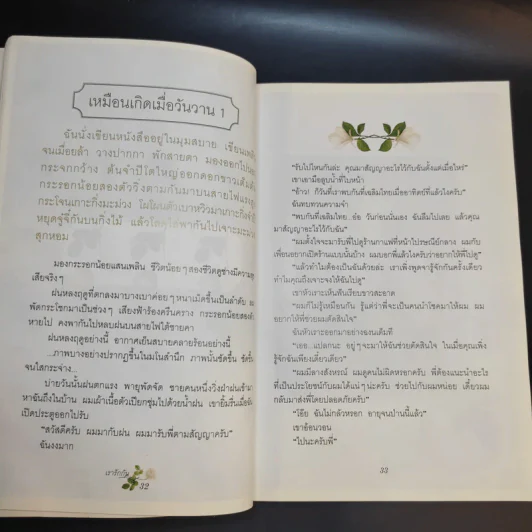 เหมือนเกิดเมื่อวันวาน 1
ฉันนั่งเขียนหนังสืออยู่ในมุมสบาย เขียนเพลิน
จนเมื่อยล้า วางปากกา พักสายตา มองออกไปนอก
กระจกกว้าง ต้นจำปีใหญ่ออกดอกขาวเต็มต้น
กระรอกน้อยสองตัววิ่งตามกันมาบนสายไฟแล้ว
กระโจนเกาะกิ่งมะม่วง
หยุดจู๋จี๋กันบนกิ่งไม้ แล้ว พากันไปเจาะมะม่วง
สุกหอม
มองกระรอกน้อยแสนเพลิน ชีวิตน้อยๆ สองชีวิตดูช่างมีความสุข
เสียจริงๆ
ฝนหลงฤดูที่ตกลงมาบางเบาค่อยๆ หนาเม็ดขึ้นเป็นลำดับ ลม
พัดกระโชกมาเป็นช่วงๆ เสียงฟ้าร้องครืนคราง กระรอกน้อยสองตัว
หายไป คงพากันไปหลบฝนบนสายไฟใต้ชายคา
ฝนหลงฤดูอย่างนี้ อากาศเย็นสบายคลายร้อนอย่างนี้
...ภาพบางอย่างปรากฏขึ้นในมโนสำนึก ภาพนั้นชัดขึ้น ชัดขึ้น
จนใสกระจ่าง...
บ่ายวันนั้นฝนตกแรง พายุพัดจัด ชายคนหนึ่งวิ่งฝ่าฝนเข้ามา
หาฉันถึงในบ้าน ผมเผ้าเนื้อตัวเปียกชุ่มไปด้วยน้ำฝน เขายิ้มรื่นเมื่อฉัน
เปิดประตูออกไปรับ
"สวัสดีครับ ผมมากับฝน ผมมารับพี่ตามสัญญาครับ"
ฉันงงมาก
เรารักกัน
32
"รับไปไหนกันล่ะ คุณมาสัญญาอะไรไว้กับฉันตั้งแต่เมื่อไหร่"
เขาเอามือลูบน้ำที่ใบหน้า
"อ้าว! ก็วันที่เราพบกันที่เฉลิมไทยเมื่ออาทิตย์ที่แล้วไงครับ"
ฉันทบทวนความจำ
"พบกันที่เฉลิมไทย..อ๋อ วันก่อนนั่นเอง ฉันลืมไปเลย แล้วคุณ
มาสัญญาอะไรกับฉัน"
"ผมตั้งใจจะมารับพี่ไปดูร้านกาแฟที่หน้าไปรษณีย์กลาง ผมกับ
เพื่อนอยากเปิดร้านแบบนั้นบ้าง ผมบอกพี่แล้วไงครับว่าอยากให้พี่ไปดู"
"แล้วทำไมต้องเป็นฉันด้วยล่ะ เราเพิ่งพูดจารู้จักกันครั้งเดียว
ทำไมคุณถึงเจาะจงให้ฉันไปดู"
เขาหัวเราะเห็นฟันเรียงขาวสะอาด
"ผมก็ไม่รู้เหมือนกัน รู้แต่ว่าพี่จะเป็นคนนำโชคมาให้ผม ผม
อยากให้พี่ช่วยผมตัดสินใจ"
ฉันหัวเราะออกมาอย่างงงเต็มที
"เออ.. แปลกนะ อยู่ๆ จะมาให้ฉันช่วยตัดสินใจ ในเมื่อคุณเพิ่ง
รู้จักฉันเพียงเดี๋ยวเดียว"
"ผมมีลางสังหรณ์ ผมดูคนไม่ผิดหรอกครับ พี่ต้องแนะนำอะไร
ที่เป็นประโยชน์กับผมได้แน่ๆ นะครับ ช่วยไปกับผมหน่อย เดี๋ยวผม
กลับมาส่งพี่โดยปลอดภัยครับ"
"โอ๊ย ฉันไม่กลัวหรอก อายุจนป่านนี้แล้ว"
เขาอ้อนวอน
"ไปนะครับพี่"
33